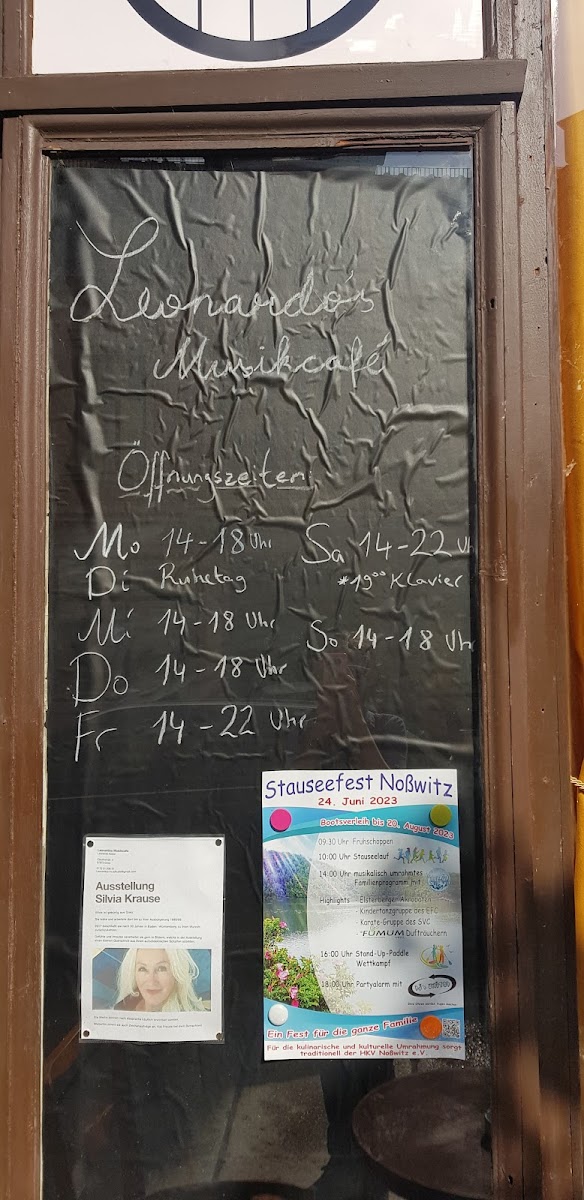 Leonardo's
Musikcafé
Öffnungszeiten:
Mo 14-18 Uhr
Di Ruhetag
Mi 14-18 Uhr
Do 14-18 Uhr
Fr 14-22 Uhr
Sa 14-22 Uh
*19⁰⁰ Klavier
So 14-18 Uhr
Ausstellung
Silvia Krause
Stauseefest Noßwitz
24. Juni 2023
Bootsverleih bis 20. August 2023
09:30 Uhr Frühschoppen
10:00 Uhr Stauseelauf
14:00 Uhr musikalisch umrahmtes
Familienprogramm mit
Highlights - Elsterberger Akrobaten
- Kindertanzgruppe des EFC
- Karate-Gruppe des SVC
- "FUMUM" Dufträuchern
16:00 Uhr Stand-Up-Paddle
Wettkampf
18:00 Uhr Partyalarm mit
Ein Fest für die ganze Familie
Für die kulinarische und kulturelle Umrahmung sorgt
traditionell der HKV Noßwitz e.V.